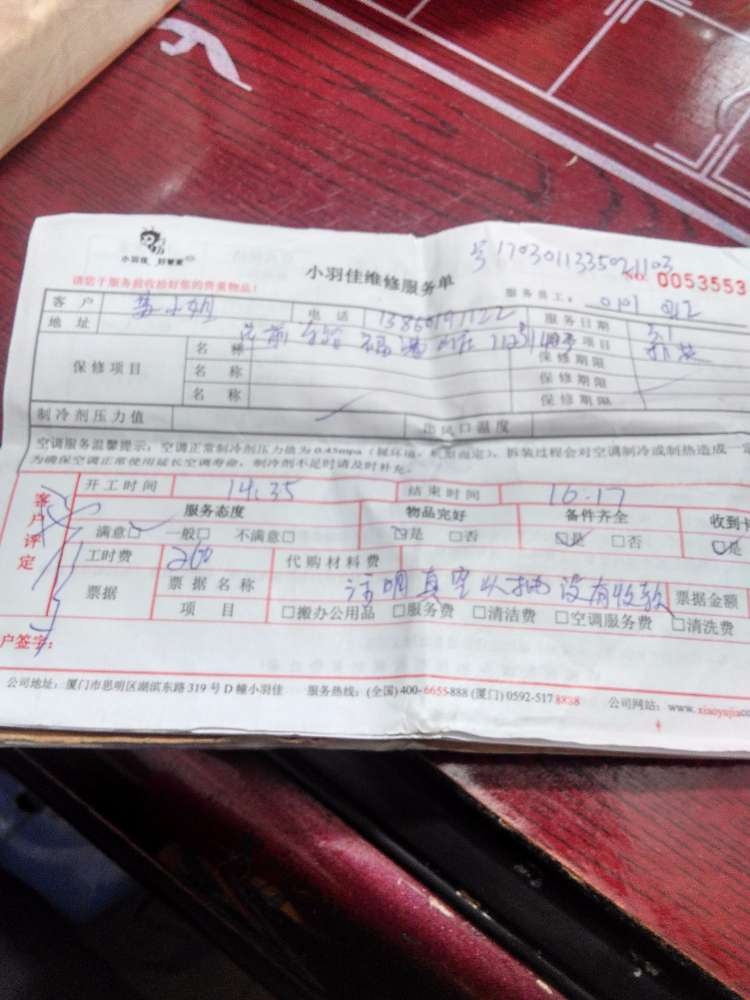 小羽佳 好管家
小羽佳维修服务单
号 1703011335021103
请您于服务前收拾好您的贵重物品!
No. 0053553
客户 小姐 电话 服务员工:
地址 服务日期
保修项目 名称 保修期限
名称 保修期限
名称 保修期限
制冷剂压力值 出风口温度
空调服务温馨提示:空调正常制冷剂压力值为0.45mpa(视环境、机型而定),拆装过程会对空调制冷或制热造成一定
为确保空调正常使用延长空调寿命,制冷剂不足时请及时补充。
客户评定
开工时间 14:35 结束时间 16·17
服务态度 物品完好 备件齐全 收到卡
满意□ 一般□ 不满意□ □是 □否 □是 □否 □是
工时费 260 代购材料费
票据 票据名称 注明真空以抽没有收款 票据金额
项目 □搬办公用品 □服务费 □清洁费 □空调服务费 □清洗费
户签字:
公司地址:厦门市思明区湖滨东路319号D幢小羽佳 服务热线:(全国)400-6655888 (厦门)0592-5178858 公司网站:www.xiaoyujia.co